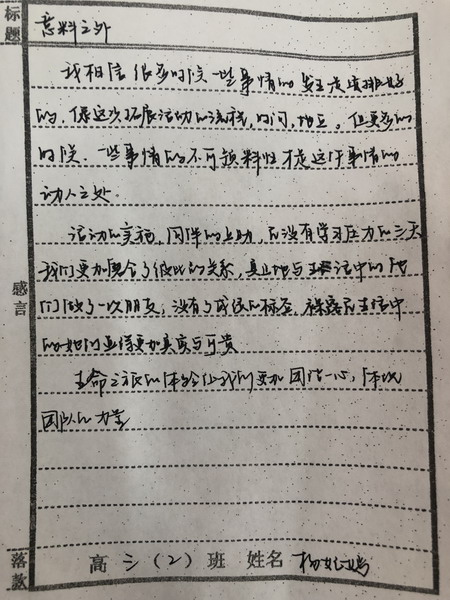 标题 意料之外
我相信很多时候一些事情的发生是安排好
的，像这次拓展活动的流程，时间，地点。但更多的
时候，一些事情的不可预料性才是这件事情的
动人之处。
活动的实施，同伴的互助，在没有学习压力的三天
我们更加融合了彼此的关系，真正地与生活中的他
们做了一次朋友，没有了成绩的标签，裸露在生活中
的她们显得更加真实与可贵
生命之旅的体验让我们更加团结一心，体现
团队的力量
感言
落款 高三（2）班 姓名 杨